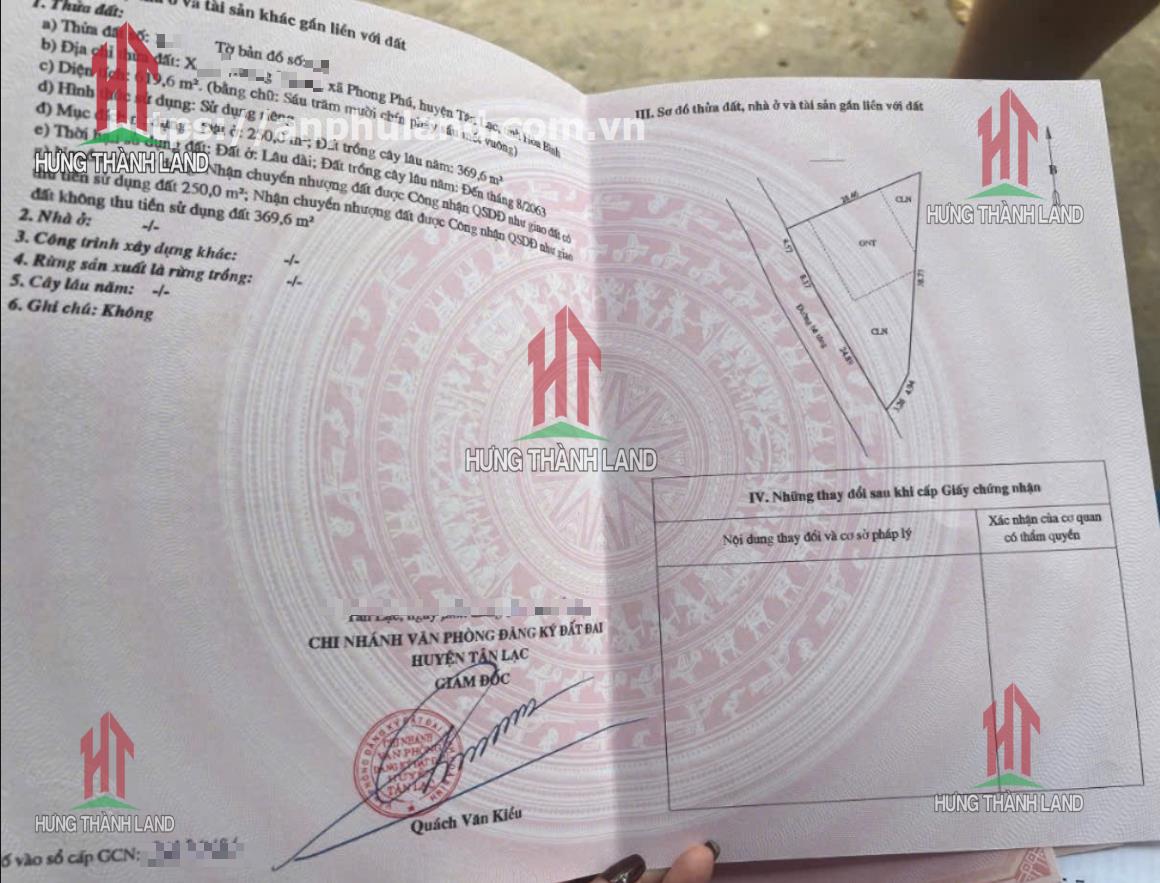 ở và tài sản khác gắn liền với đất
1. Thửa đất:
a) Thửa đất số: Tờ bản đồ số:
b) Địa chỉ thửa đất: X xã Phong Phú, huyện Tân Lạc, tỉnh Hòa Bình
c) Diện tích: 619,6 m². (bằng chữ: Sáu trăm mười chín phẩy sáu mét vuông)
d) Hình thức sử dụng: Sử dụng riêng
đ) Mục đích ở: 250,0 m²; Đất trồng cây lâu năm: 369,6 m²
e) Thời hạn sử dụng đất: Đất ở: Lâu dài; Đất trồng cây lâu năm: Đến tháng 8/2063
Nhận chuyển nhượng đất được Công nhận QSDĐ như giao đất có
thu tiền sử dụng đất 250,0 m²; Nhận chuyển nhượng đất được Công nhận QSDĐ như giao
đất không thu tiền sử dụng đất 369,6 m²
2. Nhà ở: -/-
3. Công trình xây dựng khác: -/-
4. Rừng sản xuất là rừng trồng: -/-
5. Cây lâu năm: -/-
6. Ghi chú: Không
Tân Lạc, ngày
CHI NHÁNH VĂN PHÒNG ĐĂNG KÝ ĐẤT ĐAI
HUYỆN TÂN LẠC
GIÁM ĐỐC
CHI NHÁNH
VĂN PHÒNG
ĐĂNG KÝ ĐẤT ĐAI
HUYỆN
TÂN LẠC
Quách Văn Kiều
ố vào sổ cấp GCN:
III. Sơ đồ thửa đất, nhà ở và tài sản gắn liền với đất
B
CLN
ONT
4.57
8.37
Đường bê tông
24.89
CLN
3.26
4.94
IV. Những thay đổi sau khi cấp Giấy chứng nhận
Nội dung thay đổi và cơ sở pháp lý
Xác nhận của cơ quan
có thẩm quyền
https://anphuland.com.vn
HƯNG THÀNH LAND
HƯNG THÀNH LAND
HƯNG THÀNH LAND
HƯNG THÀNH LAND
HƯNG THÀNH LAND